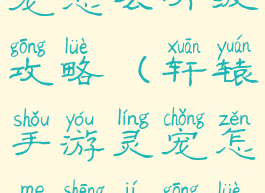 gōng lüè xuān yuán
攻略(轩辕
shǒu yóu líng chǒng zěn
手游灵宠怎
me shēng jí gōng lüè